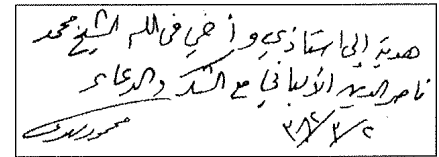 هدية إلى استاذي وأخي في الله الشيخ محمد
ناصر الدين الألباني مع الشكر والدعاء
٣٨٢/٣/٢